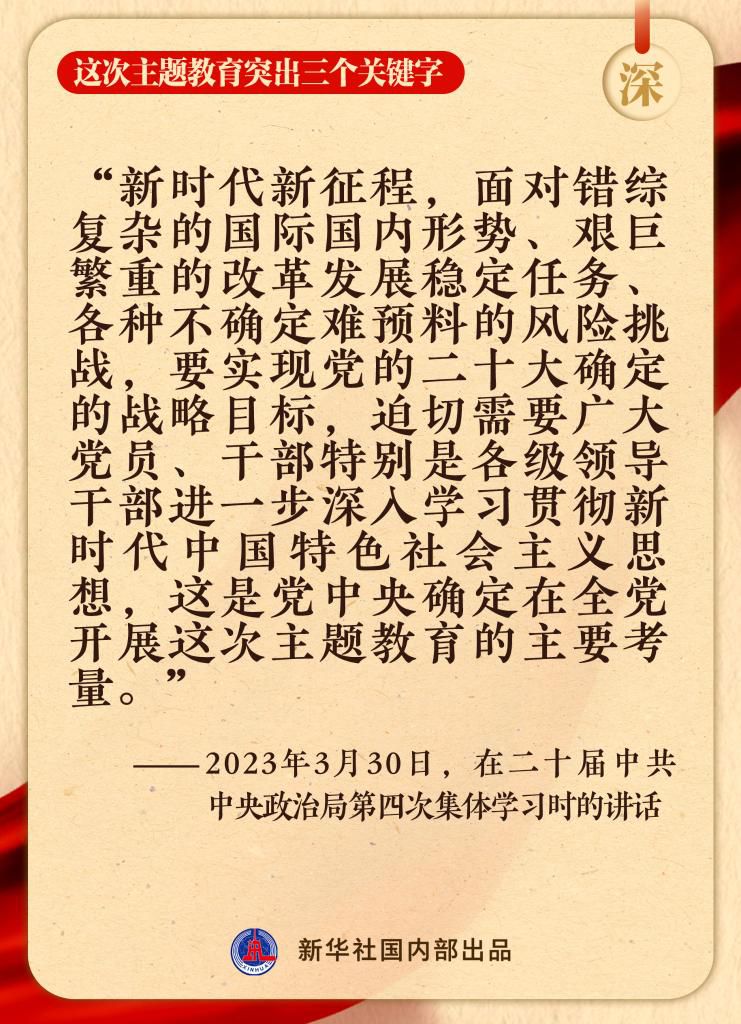 这次主题教育突出三个关键字
深
“新时代新征程，面对错综
复杂的国际国内形势、艰巨
繁重的改革发展稳定任务、
各种不确定难预料的风险挑
战，要实现党的二十大确定
的战略目标，迫切需要广大
党员、干部特别是各级领导
干部进一步深入学习贯彻新
时代中国特色社会主义思
想，这是党中央确定在全党
开展这次主题教育的主要考
量。”
——2023年3月30日，在二十届中共
中央政治局第四次集体学习时的讲话
XINHUA
新华社国内部出品